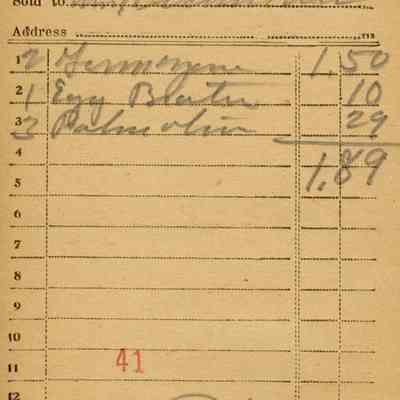 Sold to
Address
1 2 1.50
2 1 Egg Beater 10
3 3 Palmolive 29
4 1.89
5
6
7
8
9
10
11 41
12